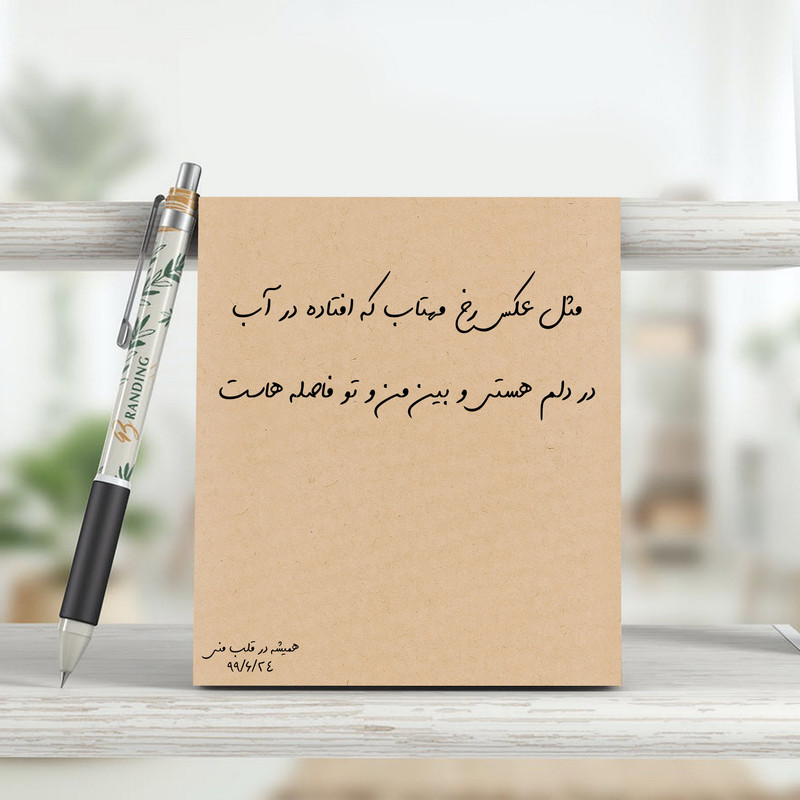 مثل عکس رخ مهتاب که افتاده در آب
در دلم هستی و بین من و تو فاصله هاست
BRANDING
همیشه در قلب منی
۹۹/۶/۲۴